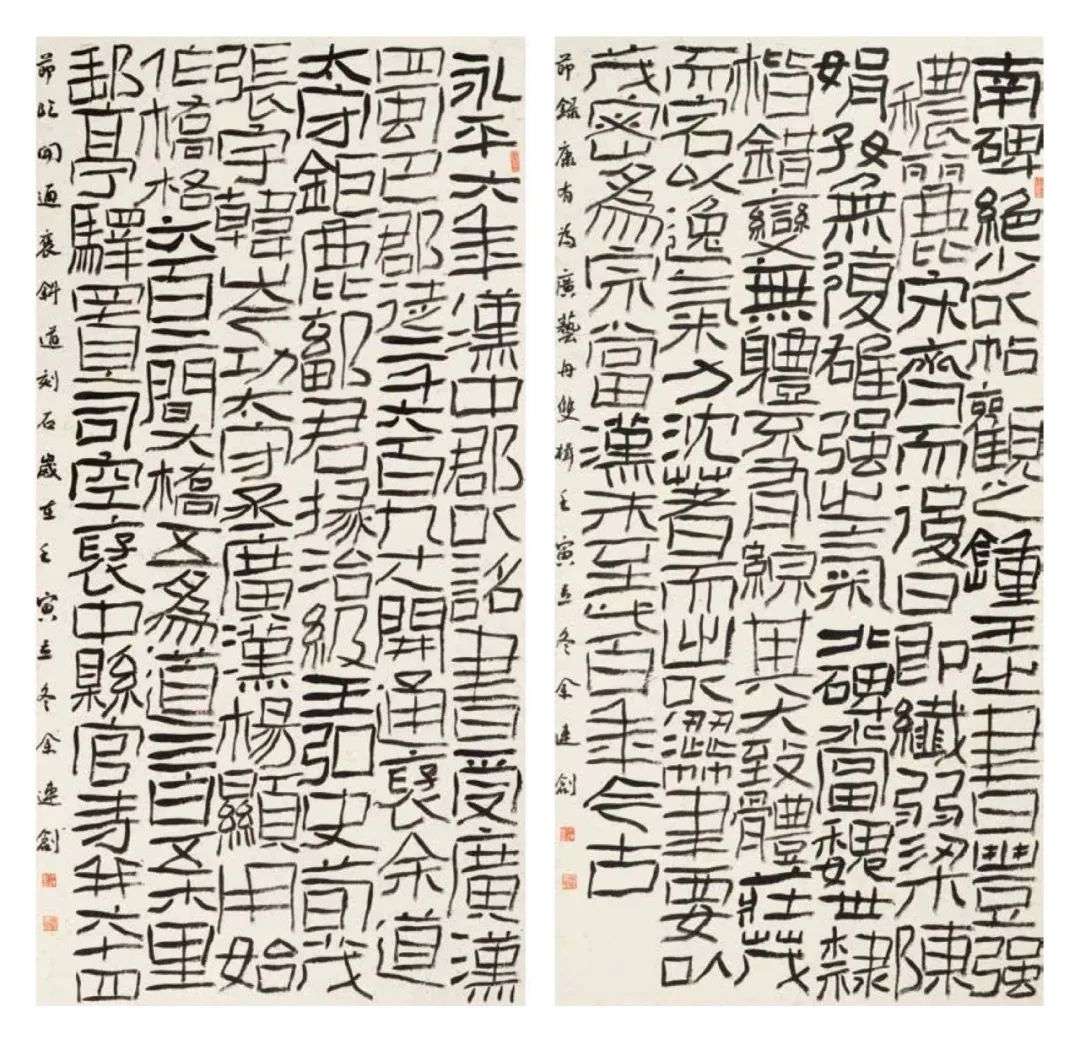 南碑絕少以帖觀之鍾王之書豐强
穠麗宋齊而後日即纖弱梁陳
娟好無復雄强之氣北碑當魏世隸
楷錯變無體不有綜其大致體莊茂
而宕以逸氣力沈著而出以澀筆要以
茂密爲宗當漢末至此百年今古
節錄康有為廣藝舟雙楫壬寅立冬金連創
永平六年漢中郡以詔書受廣漢
蜀巴郡徒二千六百九十人開通褒余道
太守鉅鹿鄐君掾治級王弘史荀茂
張宇韓岑功太守丞廣漢楊顯用始
作橋格六百二間大橋五爲道二百五十里
郵亭驛置司空褒中縣官寺并六十四
節臨開通褒斜道刻石歲在壬寅立冬金連創